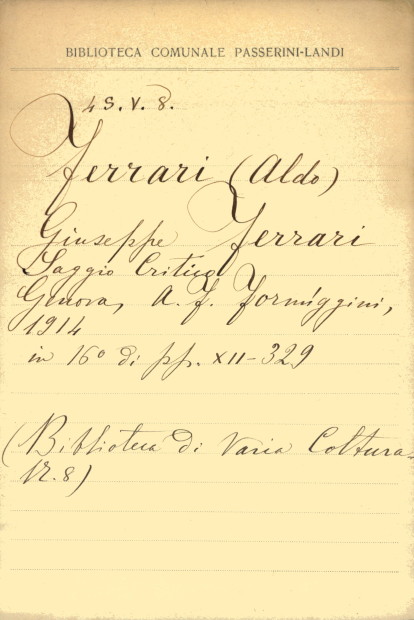 BIBLIOTECA COMUNALE PASSERINI-LANDI
4 S. V. 8.
Ferrari (Aldo)
Giuseppe Ferrari
Saggio Critico
Genova, A. F. Formiggini,
1914
in 16° di pp. XII-329
(Biblioteca di Varia Coltura
N. 8)